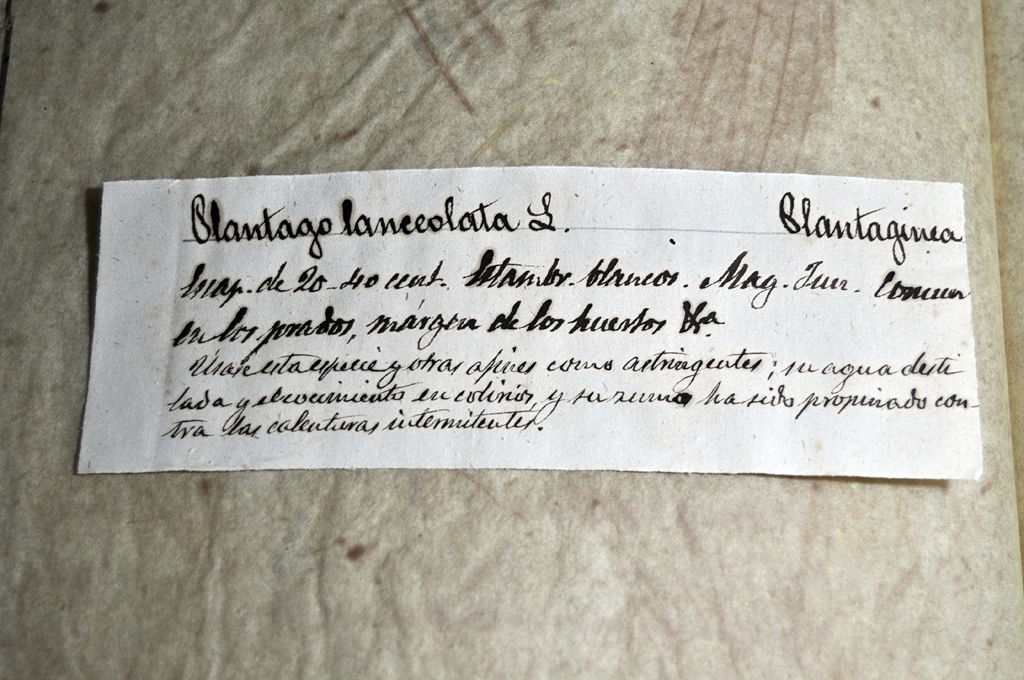 Plantago lanceolata L. Plantaginea
Escap. de 20-40 cent. Estambr. blancos. May. Jun. Comun
en los prados, márgen de los huertos &a.
Usase esta especie y otras afines como astringentes; su agua desti
lada y el cocimiento en colirios, y su zumo ha sido propinado con-
tra las calenturas intermitentes.